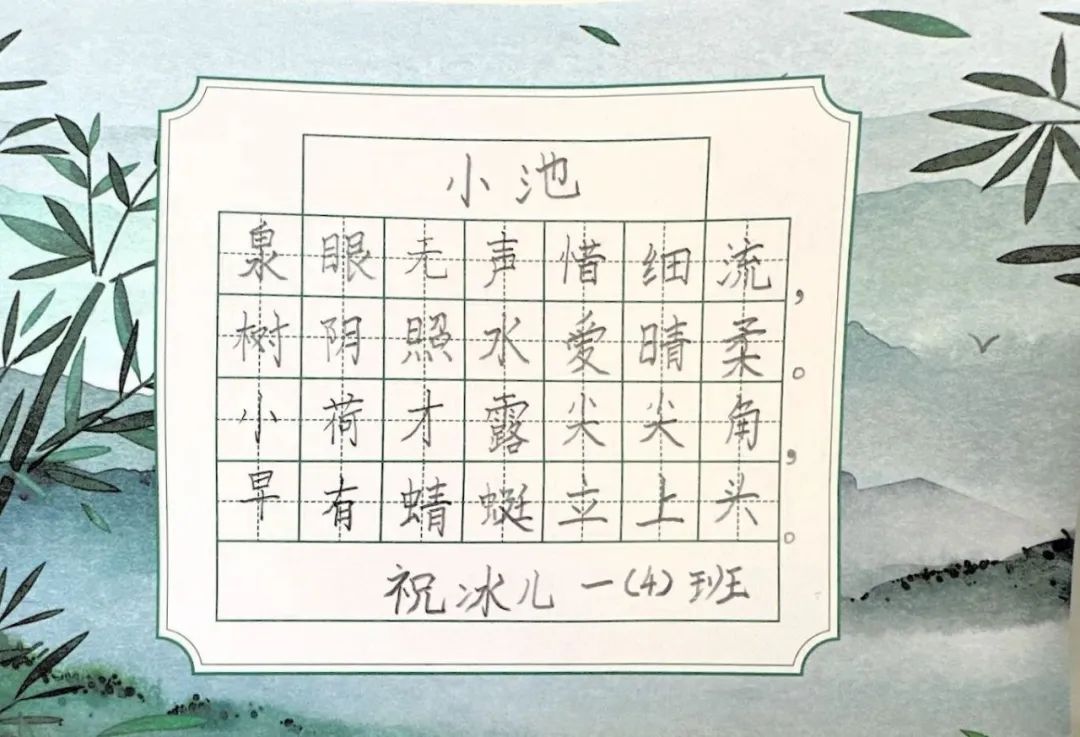 小池
泉眼无声惜细流，
树阴照水爱晴柔。
小荷才露尖尖角，
早有蜻蜓立上头。
祝冰儿 一（4）班